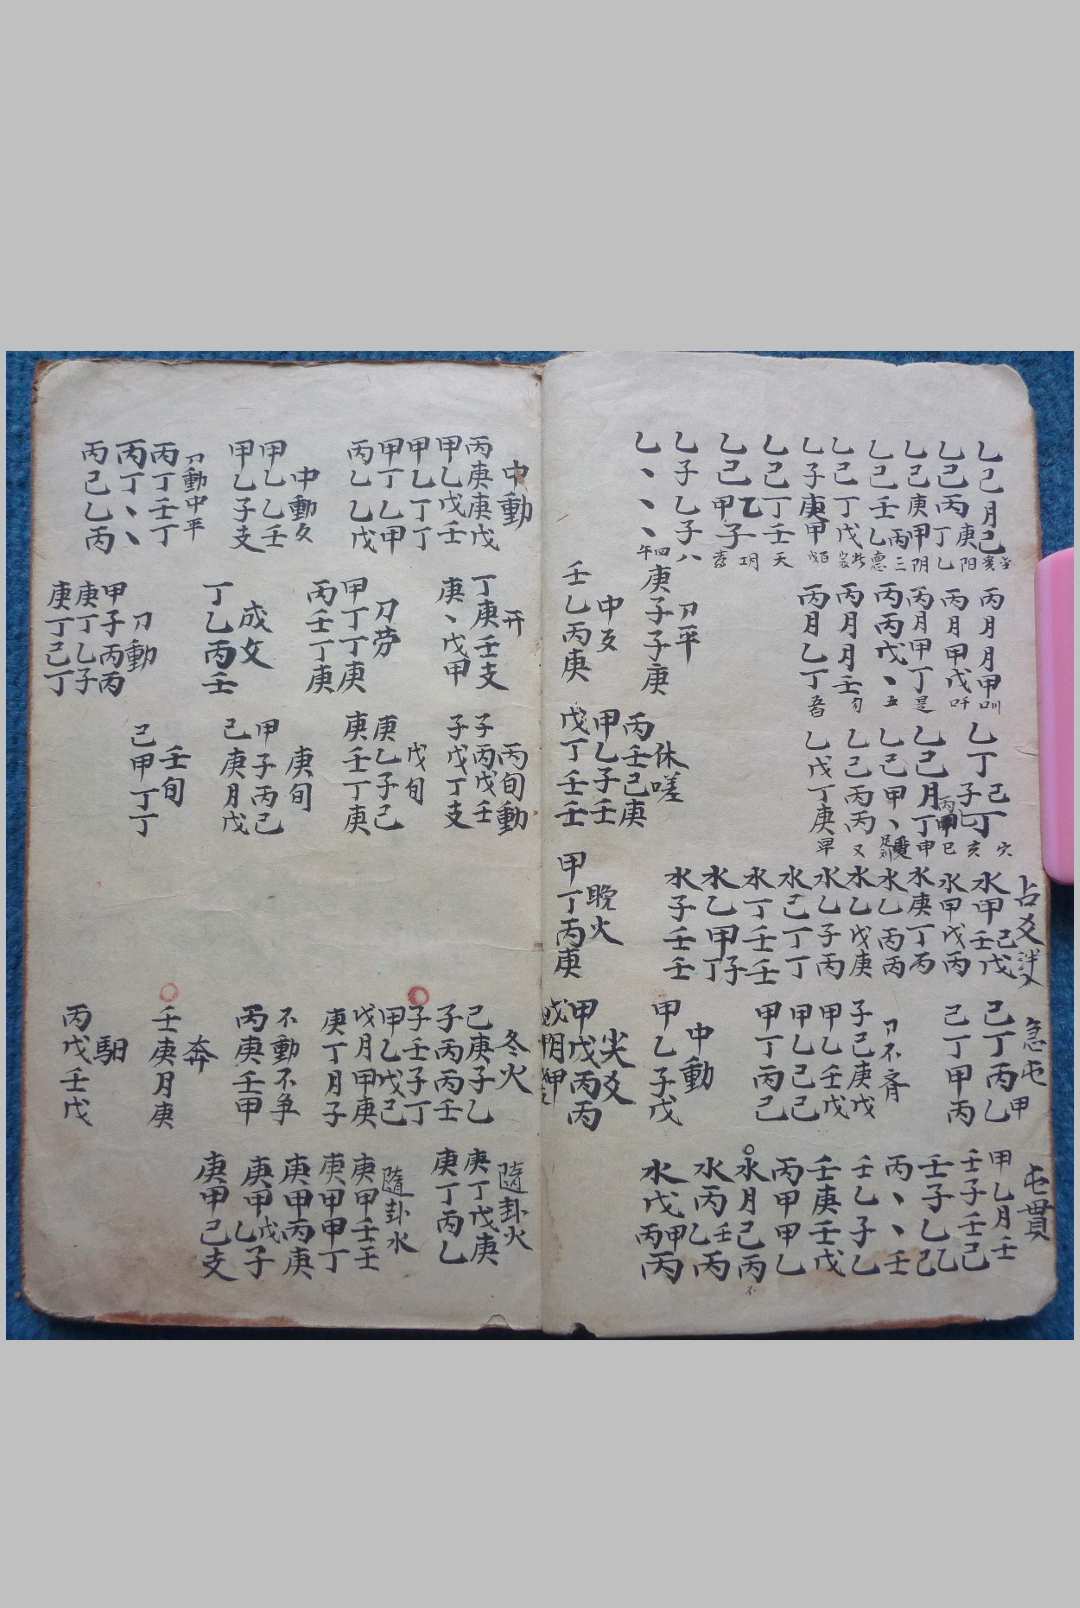 乙己月己
乙己丙庚
乙己庚甲
乙己壬乙
乙己丁戊
乙子庚甲
乙己丁壬天
乙己甲乙子
乙子乙子八
乙丶丶丶
丙月月甲
丙月甲戊
丙月甲丁是
丙丙戊丶五
丙月月壬
丙月乙丁
刀平
庚子子庚
中爻
壬乙丙庚
乙丁己丁
乙己月丁申
乙己甲丶
乙己丙丙又
乙戊丁庚
休嗟
丙壬己庚
甲乙子壬
戊丁壬壬
占爻
水甲壬己戊
水甲戊丙
水庚丁丙
水乙丙丙
水乙戊庚
水乙子丙
水己丁丁
水丁壬壬
水乙甲丁子
水子壬壬
晚火
甲丁丙庚
急屯
己丁丙乙甲
己丁甲丙
刀不齐
子己庚戊
甲乙壬戊
甲乙己己
甲丁丙己
中動
甲乙子戊
尖爻
甲戊丙丙
屯貫
甲乙月壬
壬子壬己
壬子乙己
丙丶丶壬
壬乙子乙
壬庚壬戊
丙甲甲乙
水月己丙
水丙乙壬丙
水戊丙甲丙
中動
丙庚庚戊
甲乙戊壬
甲乙丁丁
甲丁乙甲
丙乙乙戊
中動爻
甲乙乙壬
甲乙子支
刀動中平
丙丁壬丁
丙丁丶丶
丙己乙丙
开
丁庚壬支
庚丶戊甲
刀劳
甲丁丁庚
丙壬丁庚
成爻
丁乙丙壬
刀動
甲子丙丙
庚丁乙子
庚丁己丁
丙旬動
子丙戊壬
子戊丁支
戊旬
庚乙子己
庚壬丁庚
庚旬
甲子丙己
己庚月戊
壬旬
己甲丁丁
冬火
己庚子乙
子丙丙壬
子壬子丁
甲乙戊己
戊月甲庚
庚丁月子
不動不争
丙庚壬甲
奔
壬庚月庚
馹
丙戊壬戊
隨卦火
庚丁戊庚
庚丁丙乙
隨卦水
庚甲壬壬
庚甲甲丁
庚甲丙庚
庚甲戊乙子
庚甲己支